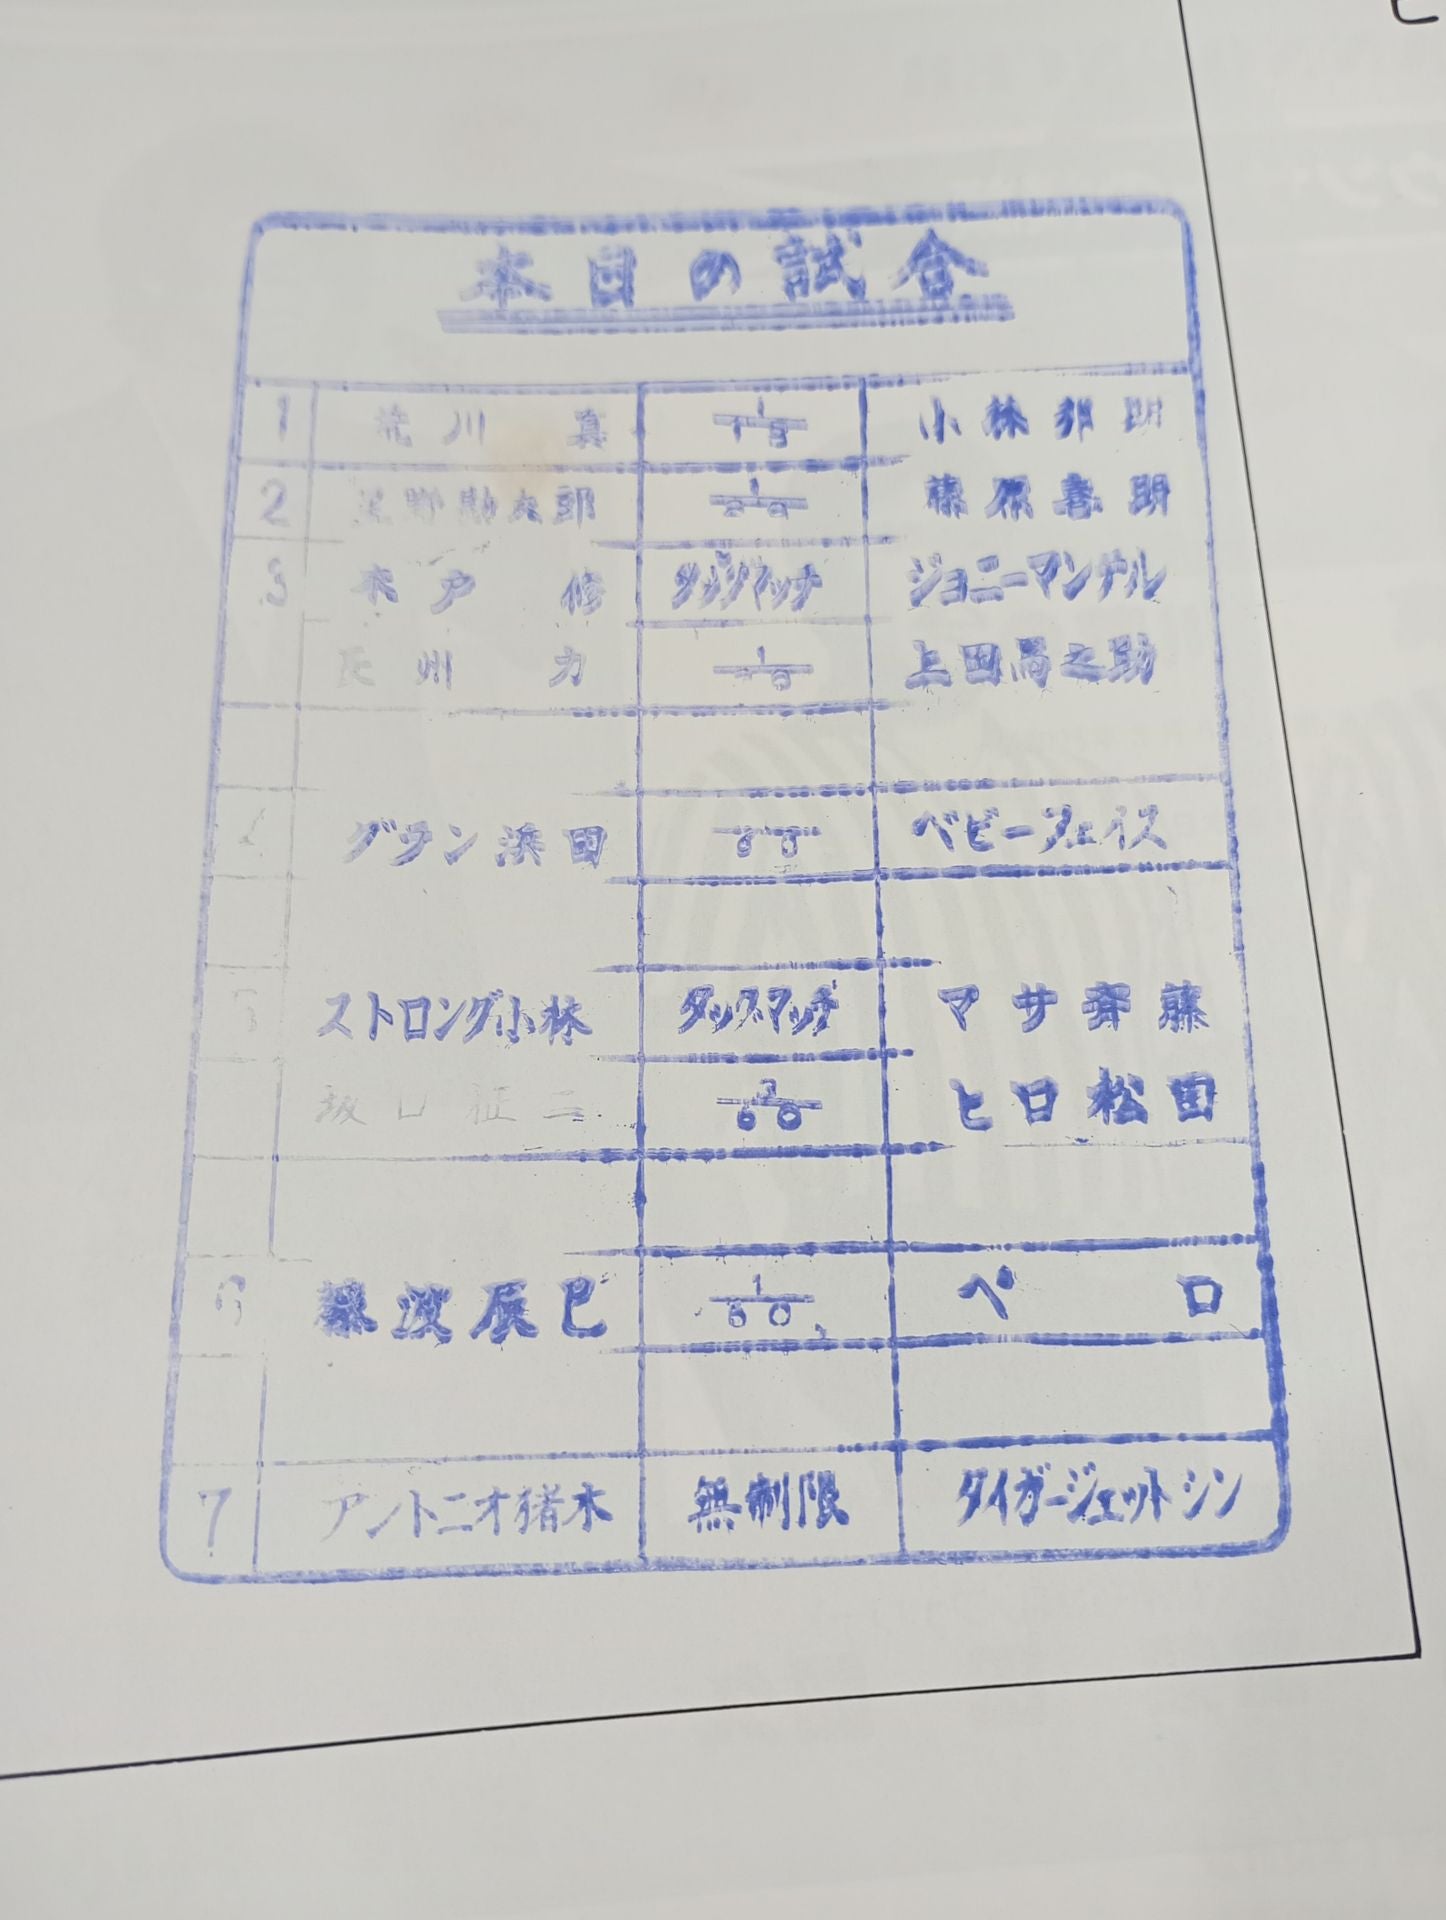 本日の試合
1 荒川真 1/15 小林邦昭
2 星野勘太郎 1/20 藤原喜明
3 木戸修 タッグマッチ ジョニーマンテル
長州力 1 上田馬之助
グラン浜田 ベビーフェイス
5 ストロング小林 タッグマッチ マサ斉藤
坂口征二 3/60 ヒロ松田
6 藤波辰巳 1/60 ペロ
7 アントニオ猪木 無制限 タイガージェットシン